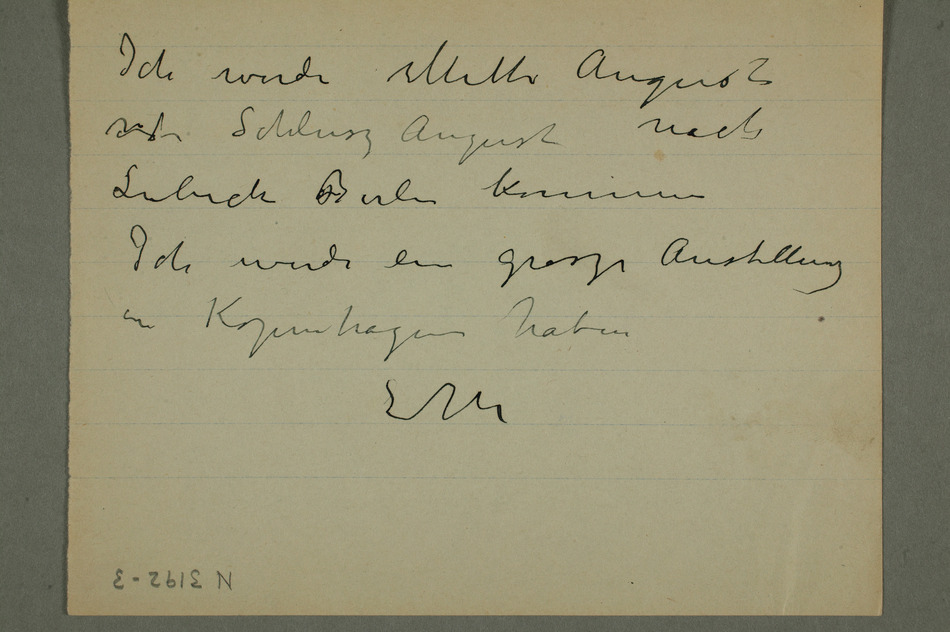 Ich werde Mitte August
oder Schlusz August nach
Lubeck Berlin kommen
Ich werde ein grosze Austellung
in Kopenhagen haben
EM
N 3192-3